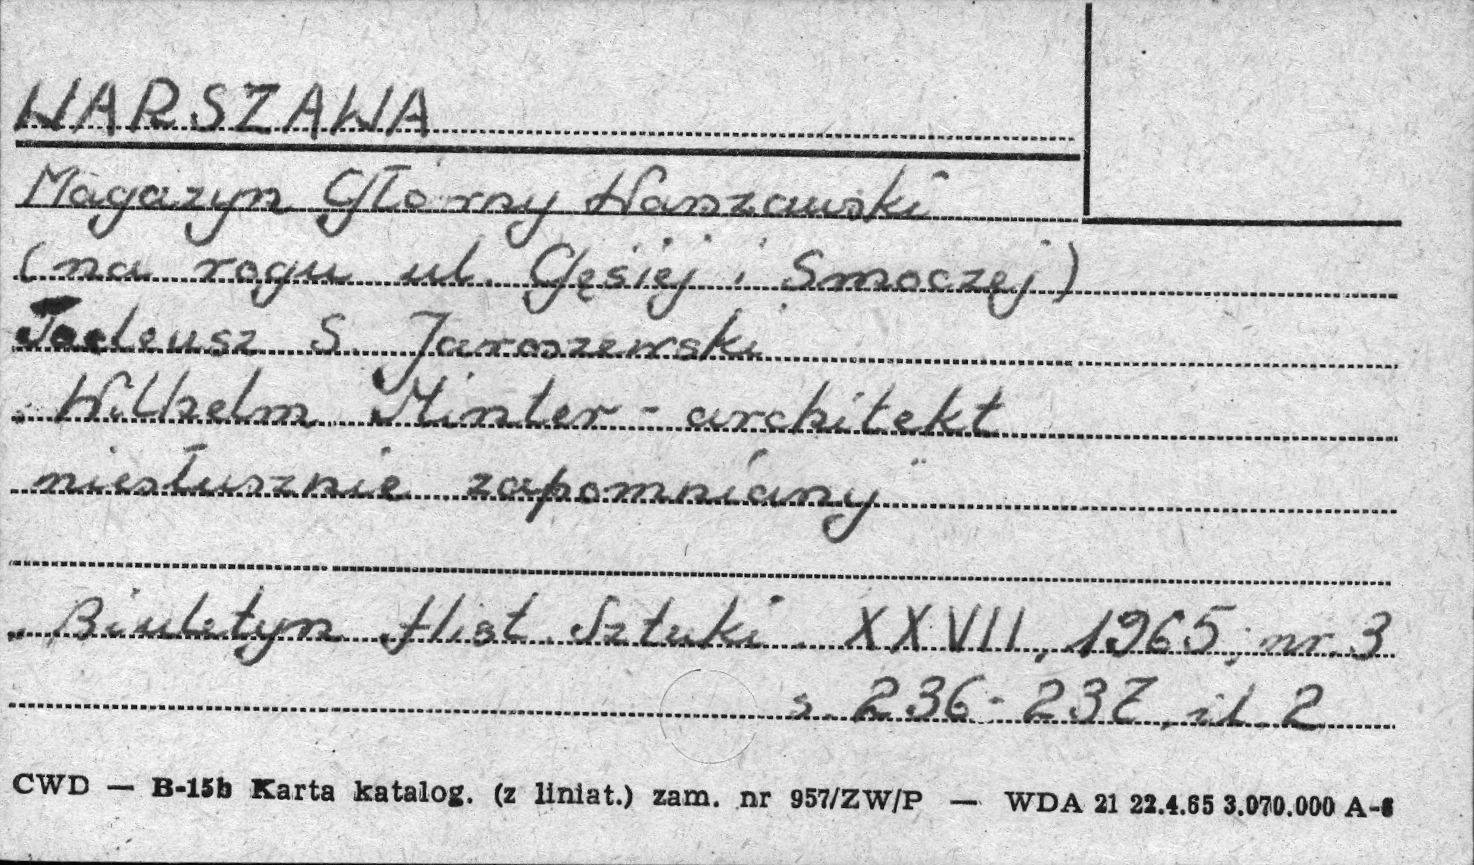 WARSZAWA
Magazyn Główny Warszawski
(na rogu ul. Gęsiej i Smoczej)
Tadeusz S. Jaroszewski
„Wilhelm Minter - architekt
niesłusznie zapomniany"
„Biuletyn Hist. Sztuki". XXVII, 1965, nr. 3
s. 236-237, il. 2
CWD — B-15b Karta katalog. (z liniat.) zam. nr 957/ZW/P — WDA 21 22.4.65 3.070.000 A-8